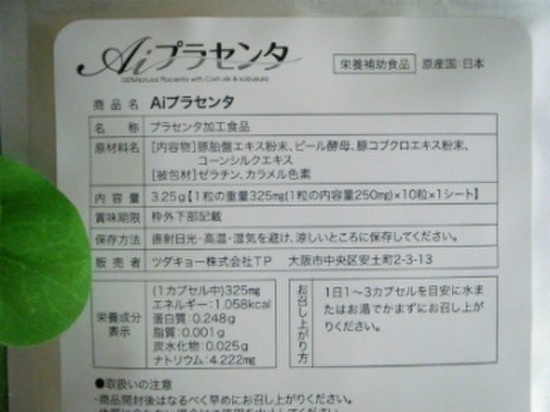 Aiプラセンタ
100%Natural Placenta with Corn silk & kobukuro
栄養補助食品 原産国:日本
商品名 Aiプラセンタ
名称 プラセンタ加工食品
原材料名 [内容物]豚胎盤エキス粉末、ビール酵母、豚コブクロエキス粉末、
コーンシルクエキス
[被包材]ゼラチン、カラメル色素
内容量 3.25g【1粒の重量325mg(1粒の内容量250mg)×10粒×1シート】
賞味期限 枠外下部記載
保存方法 直射日光・高温・湿気を避け、涼しいところに保存してください。
販売者 ツダキョー株式会社TP 大阪市中央区安土町2-3-13
栄養成分
表示
(1カプセル中)325mg
エネルギー:1.058kcal
蛋白質:0.248g
脂質:0.001g
炭水化物:0.025g
ナトリウム:4.222mg
お召し上がり方
1日1~3カプセルを目安に水ま
たはお湯でかまずにお召し上が
りください。
●取扱いの注意
・商品開封後はなるべく早めにお召し上がりください。